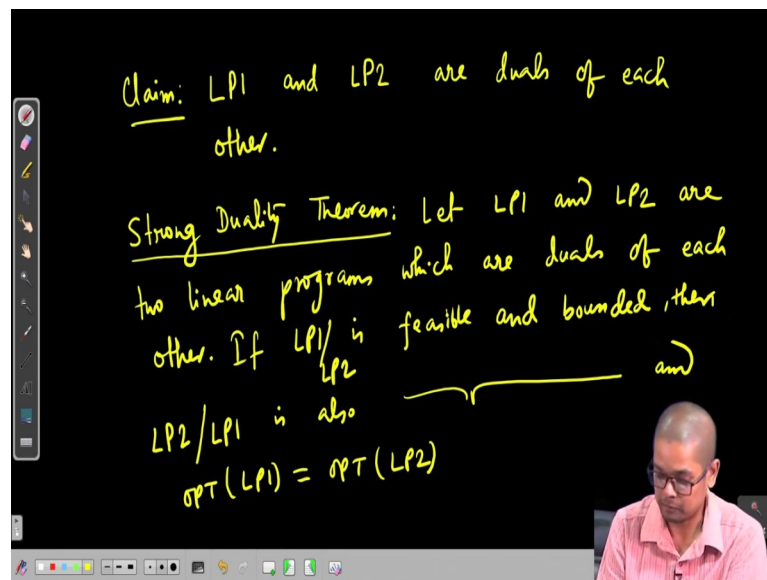 Claim: LP1 and LP2 are duals of each
other.
Strong Duality Theorem: Let LP1 and LP2 are
two linear programs which are duals of each
other. If LP1/LP2 is feasible and bounded, then
LP2/LP1 is also and
OPT(LP1) = OPT(LP2)